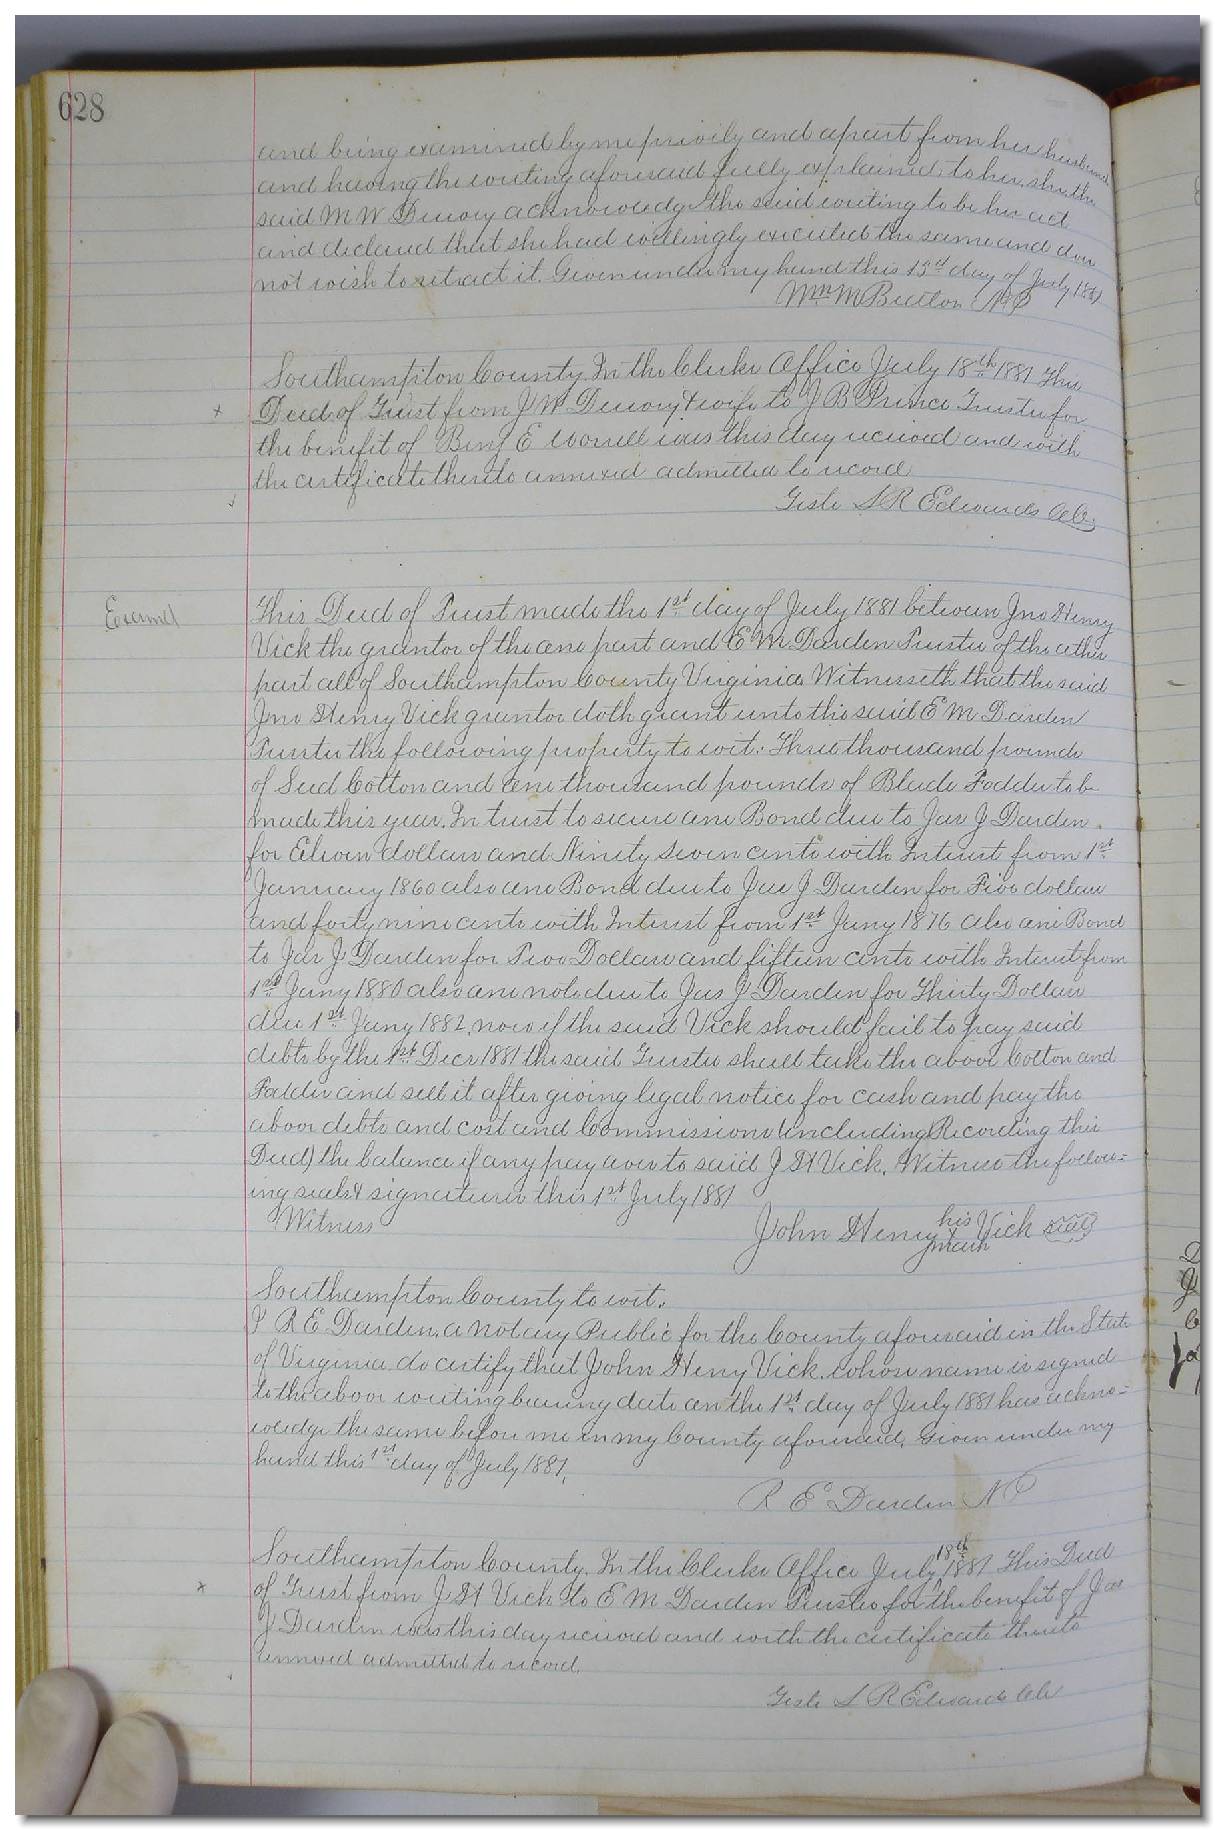 628
and being examined by me privily and apart from her husband
and having the writing aforesaid fully explained to her, she the
said M W Drewry acknowledge the said writing to be her act
and declared that she had willingly executed the same and does
not wish to retract it. Given under my hand this 15th day of July 1881
Wm M Britton N P
Southampton County In the Clerks Office July 18th 1881 This
x Deed of Trust from J W Drewry & wife to J B Prince Trustee for
the benefit of Benj E Worrell was this day received and with
the certificate thereto annexed admitted to record
Teste L R Edwards Clk
Examd
This Deed of Trust made the 1st day of July 1881 between Jno Henry
Vick the grantor of the one part and E M Darden Trustee of the other
part all of Southampton County Virginia Witnesseth that the said
Jno Henry Vick grantor doth grant unto the said E M Darden
Trustee the following property to wit: Three thousand pounds
of Seed Cotton and one thousand pounds of Blade Fodder to be
made this year. In trust to secure one Bond due to Jas J Darden
for Eleven dollars and Ninety Seven cents with Interest from 1st
January 1860 also one Bond due to Jas J Darden for Five dollars
and forty nine cents with Interest from 1st Jany 1876 also one Bond
to Jas J Darden for Two Dollars and fifteen cents with Interest from
1st Jany 1880 also one note due to Jas J Darden for Thirty Dollars
due 1st Jany 1882, now if the said Vick should fail to pay said
debts by the 1st Decr 1881 the said Trustee shall take the above Cotton and
Fodder and sell it after giving legal notice for cash and pay the
above debts and cost and Commissions (including Recording this
Deed) the balance if any pay over to said J H Vick. Witness the follow=
ing seals & signatures this 1st July 1881
Witness John Henry his x mark Vick seal
Southampton County to wit.
I R E Darden, a notary Public for the County aforesaid in the State
of Virginia do certify that John Henry Vick. whose name is signed
to the above writing bearing date on the 1st day of July 1881 has ackno=
wledge the same before me in my County aforesaid. Given under my
hand this 1st day of July 1881.
R E Darden N P
Southampton County. In the Clerks Office July 18th 1881 This Deed
x of Trust from J H Vick to E M Darden Trustee for the benefit of Jas
J Darden was this day received and with the certificate thereto
annexed admitted to record.
Teste L R Edwards Clk